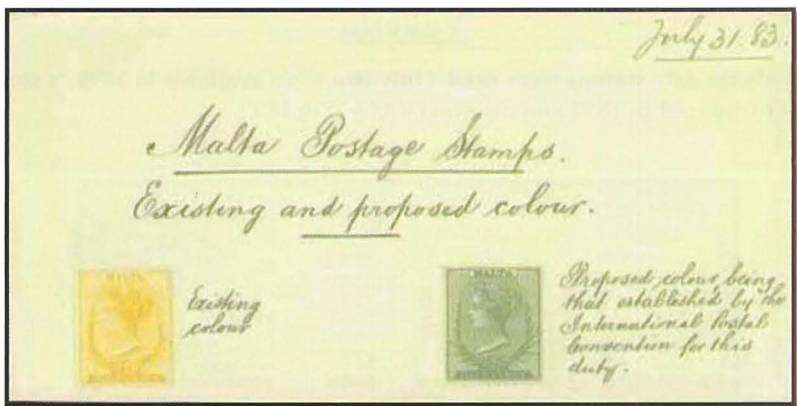 July 31. 83.
Malta Postage Stamps.
Existing and proposed colour.
Existing
colour
Proposed colour being
that established by the
International Postal
Convention for this
duty.
MALTA
MALTA